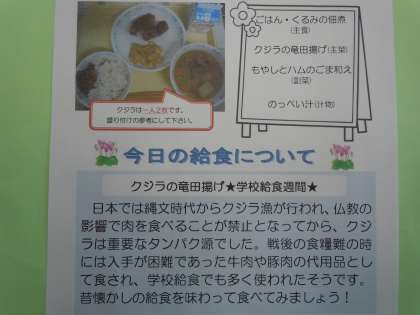 ごはん・くるみの佃煮
(主食)
クジラの竜田揚げ(主菜)
もやしとハムのごま和え
(副菜)
のっぺい汁(汁物)
クジラは一人2枚です。
盛り付けの参考にして下さい。
今日の給食について
クジラの竜田揚げ★学校給食週間★
日本では縄文時代からクジラ漁が行われ、仏教の
影響で肉を食べることが禁止となってから、クジ
ラは重要なタンパク源でした。戦後の食糧難の時
には入手が困難であった牛肉や豚肉の代用品とし
て食され、学校給食でも多く使われたそうです。
昔懐かしの給食を味わって食べてみましょう！